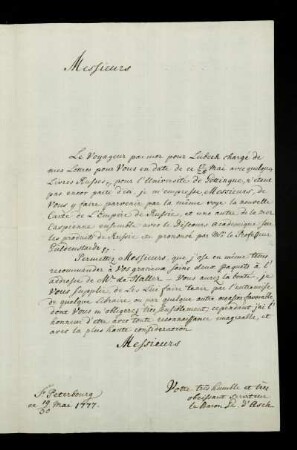 Messieurs
Le Voyageur par mer pour Lubeck chargé de
mes Lettres pour Vous en date de ce Mai avec quelques
Livres Russes, pour l'Université de Göttingue, n'étant
pas encor parti d'ici, je m'empresse, Messieurs, de
Vous y faire parvenir par la même voye la nouvelle
Carte de L'Empire de Russie, et une autre de la mer
Caspienne ensemble avec le Discours Academique sur
les produits de Russie prononcé par Mr. le Professeur
Guldenstaedt.
Permettez Messieurs, que j'ose en même tems
recommander à Vos gracieux soins deux paquets à l'
adresse de Mr. de Haller. Vous aurez la bonté, je
Vous supplie, de Les Lui faire tenir par l'entremise
de quelque libraire ou par quelque autre occasion favorable,
dont Vous m'obligerez très sensiblement, ayant l'
honneur d'etre avec toute reconnoissance imaginable, et
avec la plus haute consideration
Messieurs
St. Peterbourg
ce 19/30 Mai 1777.
Votre très humble et très
obeissant serviteur
le Baron de d'Asch